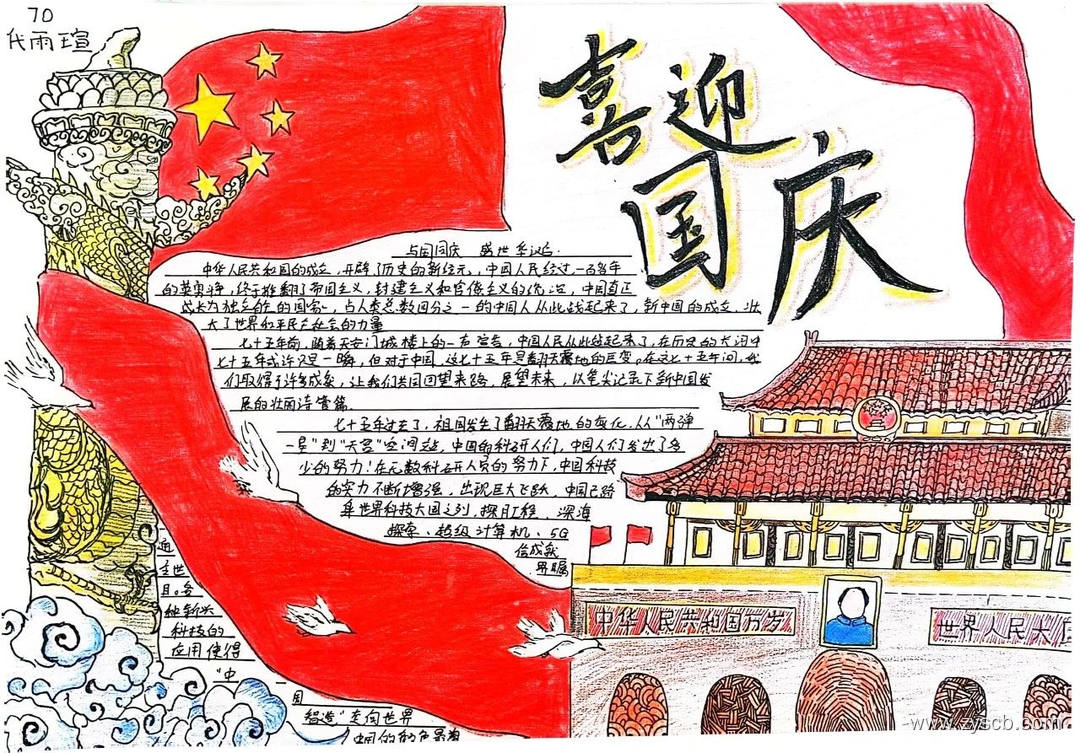 70
代雨瑄
喜迎
国庆
与国同庆 盛世华诞
中华人民共和国的成立，开辟了历史的新纪元，中国人民经过一百多年
的英勇斗争，终于推翻了帝国主义，封建主义和官僚主义的统治，中国真正
成长为独立自主的国家。占人类总数四分之一的中国人从此站起来了，新中国的成立，壮
大了世界和平民主社会的力量
七十五年前，随着天安门城楼上的一声宣告，中国人民从此站起来了，在历史的长河中
七十五年或许只是一瞬，但对于中国，这七十五年是翻天覆地的巨变。在这七十五年间，我
们取得了许多成象，让我们共同回望来路，展望未来，以笔尖记录下新中国发
展的壮丽诗篇
七十五年过去了，祖国发生了翻天覆地的变化，从“两弹
一星”到“天宫”空间站，中国的科研人们，中国人们发出了多
少的努力！在无数科研人员的努力下，中国科技
的实力不断增强，出现巨大飞跃，中国已跻
身世界科技大国之列，探月工程、深海
探索、超级计算机、5G
通信成就
全世界瞩
目。多
种新兴
科技的
应用使得
“中
国
智造”走向世界
中国的
中华人民共和国万岁
世界人民大
www.zyscb.com